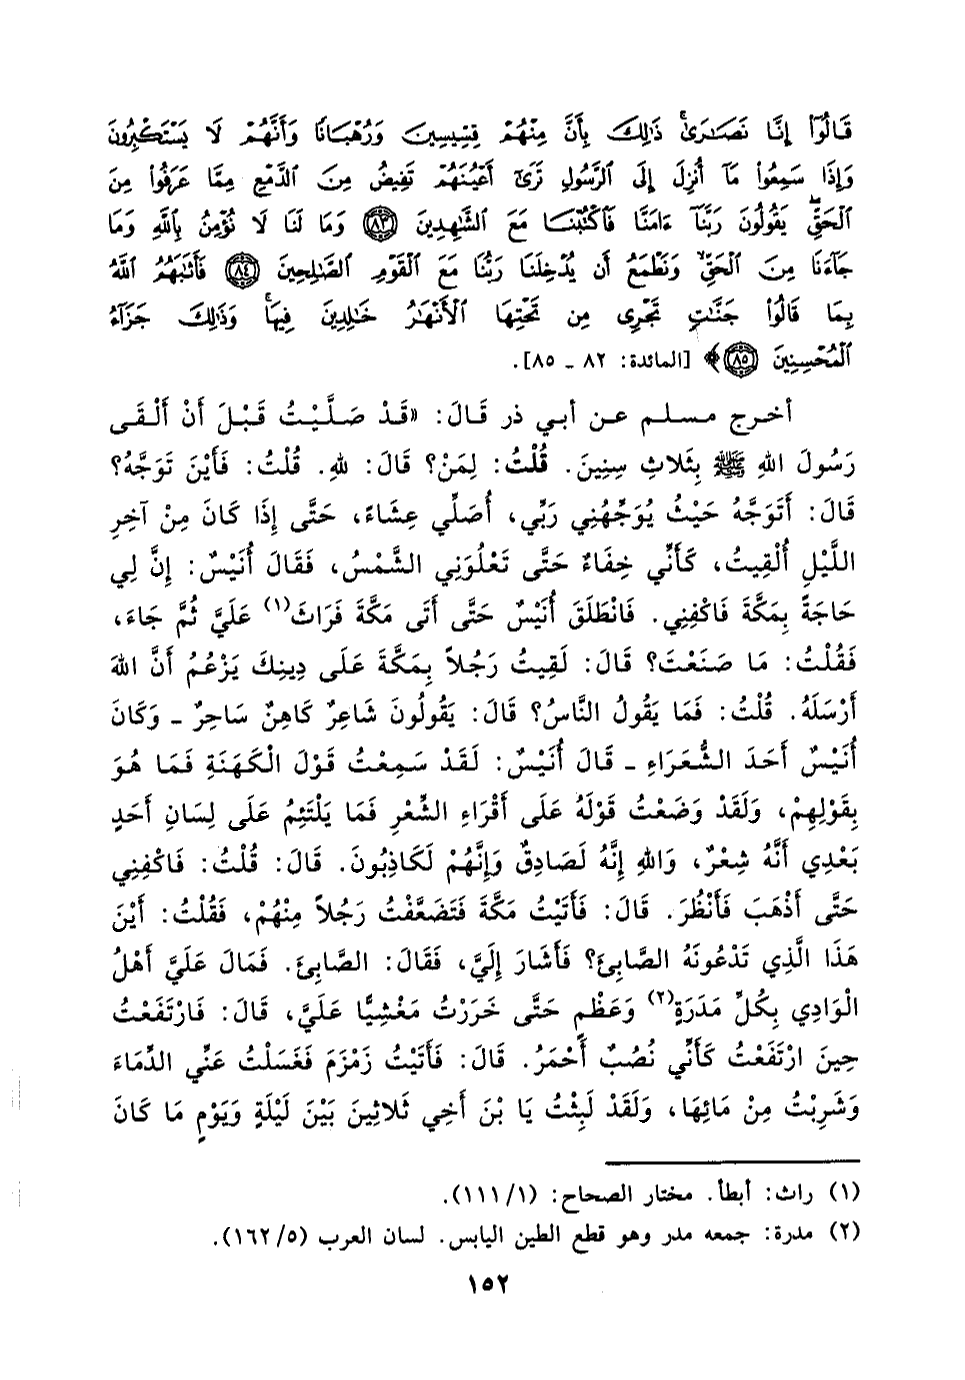 قَالُوٓا۟ إِنَّا نَصَـٰرَىٰ ۚ ذَٰلِكَ بِأَنَّ مِنْهُمْ قِسِّيسِينَ وَرُهْبَانًا وَأَنَّهُمْ لَا يَسْتَكْبِرُونَ
وَإِذَا سَمِعُوا۟ مَآ أُنزِلَ إِلَى ٱلرَّسُولِ تَرَىٰٓ أَعْيُنَهُمْ تَفِيضُ مِنَ ٱلدَّمْعِ مِمَّا عَرَفُوا۟ مِنَ
ٱلْحَقِّ ۖ يَقُولُونَ رَبَّنَآ ءَامَنَّا فَٱكْتُبْنَا مَعَ ٱلشَّـٰهِدِينَ ﴿٨٣﴾ وَمَا لَنَا لَا نُؤْمِنُ بِٱللَّهِ وَمَا
جَآءَنَا مِنَ ٱلْحَقِّ وَنَطْمَعُ أَن يُدْخِلَنَا رَبُّنَا مَعَ ٱلْقَوْمِ ٱلصَّـٰلِحِينَ ﴿٨٤﴾ فَأَثَـٰبَهُمُ ٱللَّهُ
بِمَا قَالُوا۟ جَنَّـٰتٍ تَجْرِى مِن تَحْتِهَا ٱلْأَنْهَـٰرُ خَـٰلِدِينَ فِيهَا ۚ وَذَٰلِكَ جَزَآءُ
ٱلْمُحْسِنِينَ ﴿٨٥﴾﴾ [المائدة: ٨٢ ـ ٨٥].
أخرج مسلم عن أبي ذر قَالَ: «قَدْ صَلَّيْتُ قَبْلَ أَنْ أَلْقَى
رَسُولَ اللهِ ﷺ بِثَلاثِ سِنِينَ. قُلْتُ: لِمَنْ؟ قَالَ: للهِ. قُلْتُ: فَأَيْنَ تَوَجَّهُ؟
قَالَ: أَتَوَجَّهُ حَيْثُ يُوَجِّهُنِي رَبِّي، أُصَلِّي عِشَاءً، حَتَّى إِذَا كَانَ مِنْ آخِرِ
اللَّيْلِ أُلْقِيتُ، كَأَنِّي خِفَاءٌ حَتَّى تَعْلُوَنِي الشَّمْسُ، فَقَالَ أُنَيْسٌ: إِنَّ لِي
حَاجَةً بِمَكَّةَ فَاكْفِنِي. فَانْطَلَقَ أُنَيْسٌ حَتَّى أَتَى مَكَّةَ فَرَاثَ(١) عَلَيَّ ثُمَّ جَاءَ،
فَقُلْتُ: مَا صَنَعْتَ؟ قَالَ: لَقِيتُ رَجُلاً بِمَكَّةَ عَلَى دِينِكَ يَزْعُمُ أَنَّ اللهَ
أَرْسَلَهُ. قُلْتُ: فَمَا يَقُولُ النَّاسُ؟ قَالَ: يَقُولُونَ شَاعِرٌ كَاهِنٌ سَاحِرٌ ـ وَكَانَ
أُنَيْسٌ أَحَدَ الشُّعَرَاءِ ـ قَالَ أُنَيْسٌ: لَقَدْ سَمِعْتُ قَوْلَ الْكَهَنَةِ فَمَا هُوَ
بِقَوْلِهِمْ، وَلَقَدْ وَضَعْتُ قَوْلَهُ عَلَى أَقْرَاءِ الشِّعْرِ فَمَا يَلْتَئِمُ عَلَى لِسَانِ أَحَدٍ
بَعْدِي أَنَّهُ شِعْرٌ، وَاللهِ إِنَّهُ لَصَادِقٌ وَإِنَّهُمْ لَكَاذِبُونَ. قَالَ: قُلْتُ: فَاكْفِنِي
حَتَّى أَذْهَبَ فَأَنْظُرَ. قَالَ: فَأَتَيْتُ مَكَّةَ فَتَضَعَّفْتُ رَجُلاً مِنْهُمْ، فَقُلْتُ: أَيْنَ
هَذَا الَّذِي تَدْعُونَهُ الصَّابِئَ؟ فَأَشَارَ إِلَيَّ، فَقَالَ: الصَّابِئَ. فَمَالَ عَلَيَّ أَهْلُ
الْوَادِي بِكُلِّ مَدَرَةٍ(٢) وَعَظْمٍ حَتَّى خَرَرْتُ مَغْشِيًّا عَلَيَّ، قَالَ: فَارْتَفَعْتُ
حِينَ ارْتَفَعْتُ كَأَنِّي نُصُبٌ أَحْمَرُ. قَالَ: فَأَتَيْتُ زَمْزَمَ فَغَسَلْتُ عَنِّي الدِّمَاءَ
وَشَرِبْتُ مِنْ مَائِهَا، وَلَقَدْ لَبِثْتُ يَا بْنَ أَخِي ثَلاثِينَ بَيْنَ لَيْلَةٍ وَيَوْمٍ مَا كَانَ
(١) راث: أبطأ. مختار الصحاح: (١١١/١).
(٢) مدرة: جمعه مدر وهو قطع الطين اليابس. لسان العرب (١٦٢/٥).
١٥٢